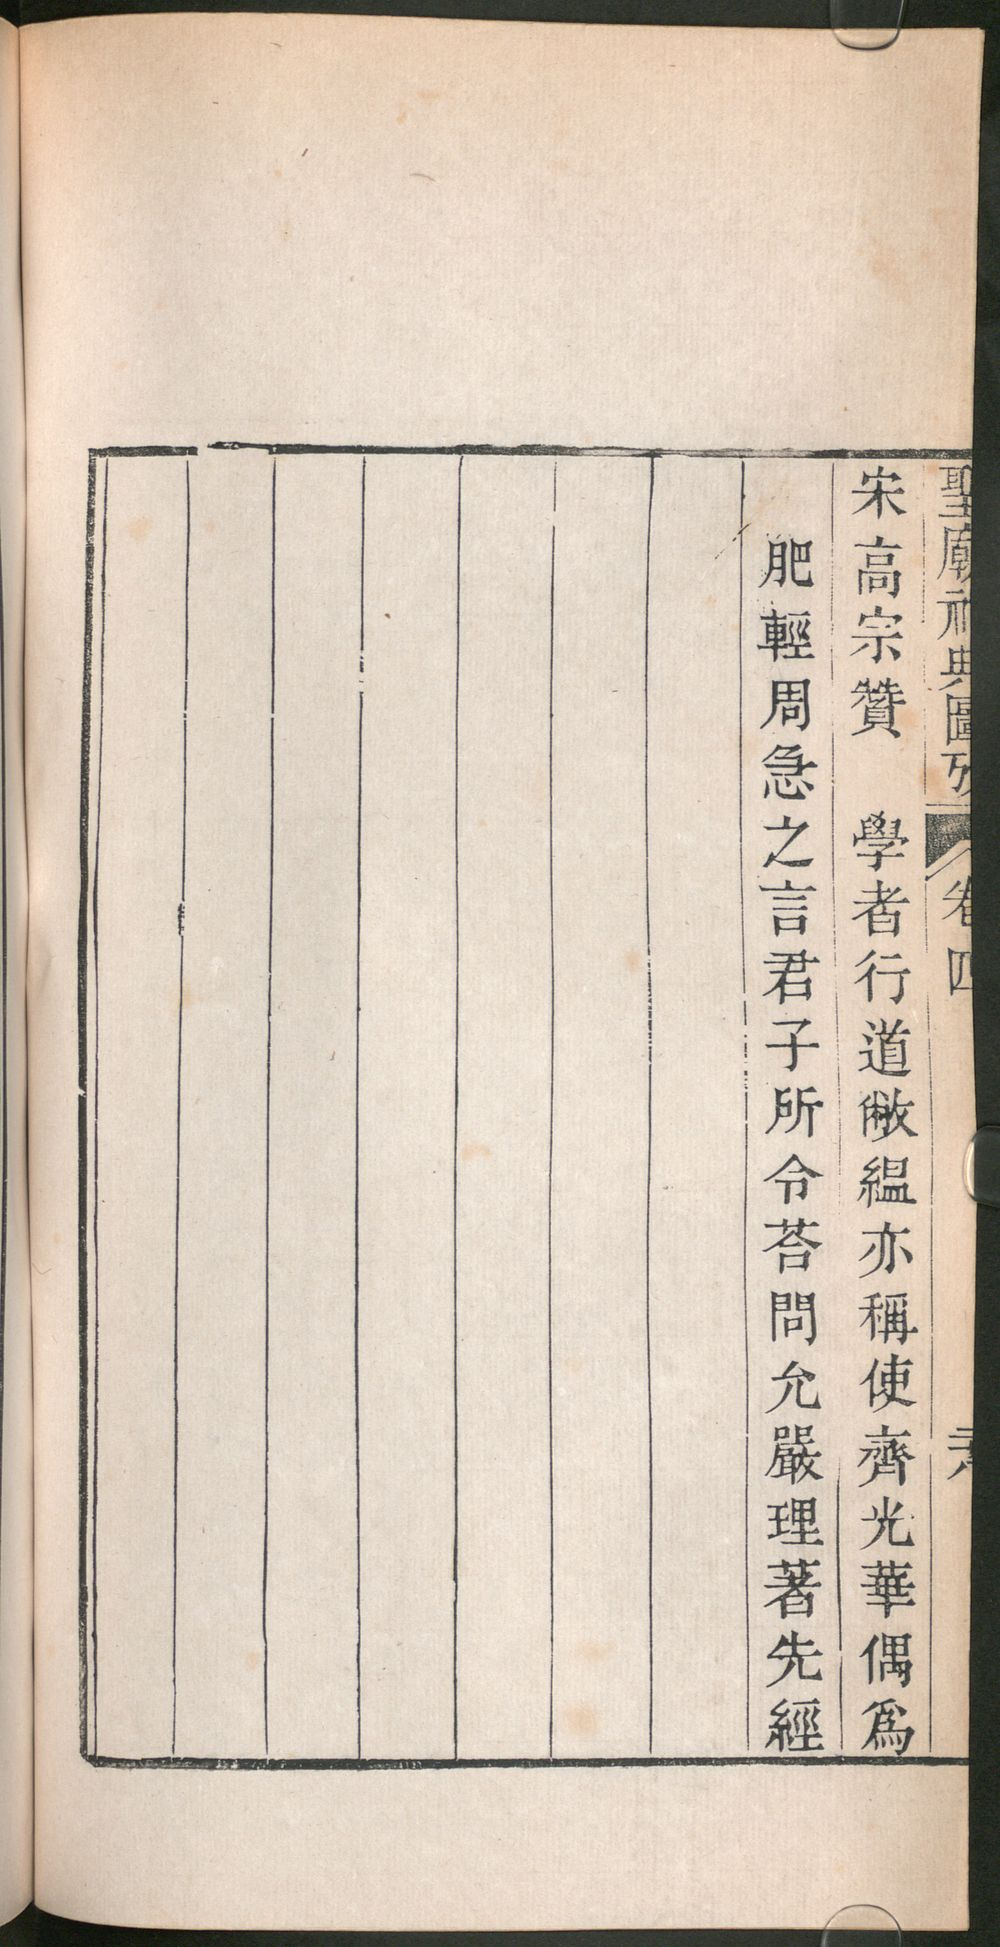 聖廟祀典圖攷 卷四
宋高宗贊 學者行道敝縕亦稱使齊光華偶爲
肥輕周急之言君子所令荅問允嚴理著先經